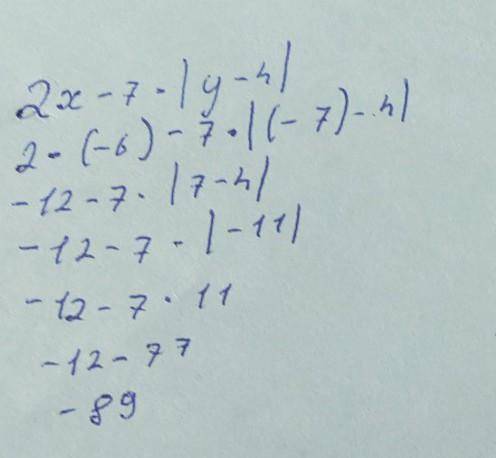 2x - 7 · |y - 4|
2 · (-6) - 7 · |(-7) - 4|
-12 - 7 · |7 - 4|
-12 - 7 · |-11|
-12 - 7 · 11
-12 - 77
-89